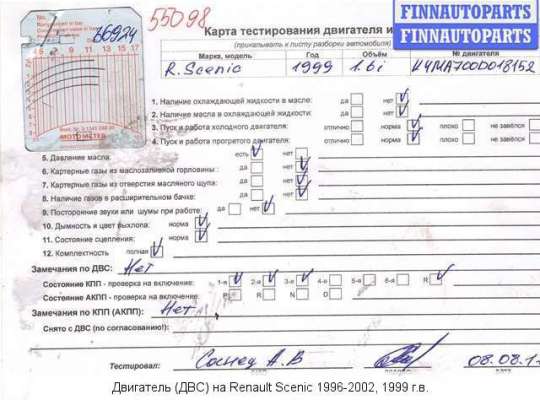 FINNAUTOPARTS
FINNAUTOPARTS
66924
55098
11 13 15 17
MOTOMETER
Карта тестирования двигателя и
(прикалывать к листу разборки автомобиля)
Марка, модель Год Объем № двигателя
R. Scenic 1999 1.6i K4MA700D018152
1. Наличие охлаждающей жидкости в масле: да нет
2. Наличие масла в охлаждающей жидкости: да нет
3. Пуск и работа холодного двигателя: отлично норма плохо не завёлся
4. Пуск и работа прогретого двигателя: отлично норма плохо не завёлся
5. Давление масла: есть нет
6. Картерные газы из маслозаливной горловины: да нет
7. Картерные газы из отверстия масляного щупа: да нет
8. Наличие газов в расширительном бачке: да нет
9. Посторонние звуки или шумы при работе: да нет
10. Дымность и цвет выхлопа: норма
11. Состояние сцепления: норма
12. Комплектность полная
Замечания по ДВС: Нет
Состояние КПП - проверка на включение: 1-я 2-я 3-я 4-я 5-я 6-я R
Состояние АКПП - проверка на включение: P R N D
Замечания по КПП (АКПП): Нет
Снято с ДВС (по согласованию!):
Тестировал: А.В 08.08.1
Двигатель (ДВС) на Renault Scenic 1996-2002, 1999 г.в.